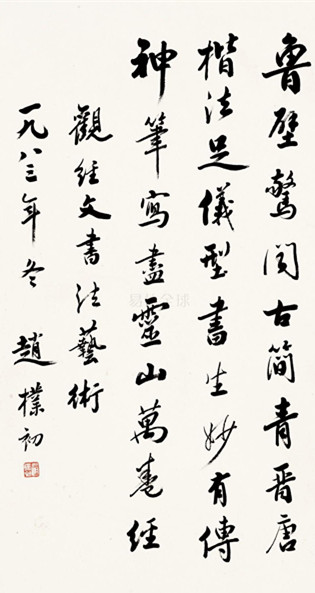 魯壁驚聞古簡青晋唐
楷法足儀型書生妙有傳
神筆寫盡靈山萬卷經
觀經文書法藝術
一九八三年冬 趙樸初